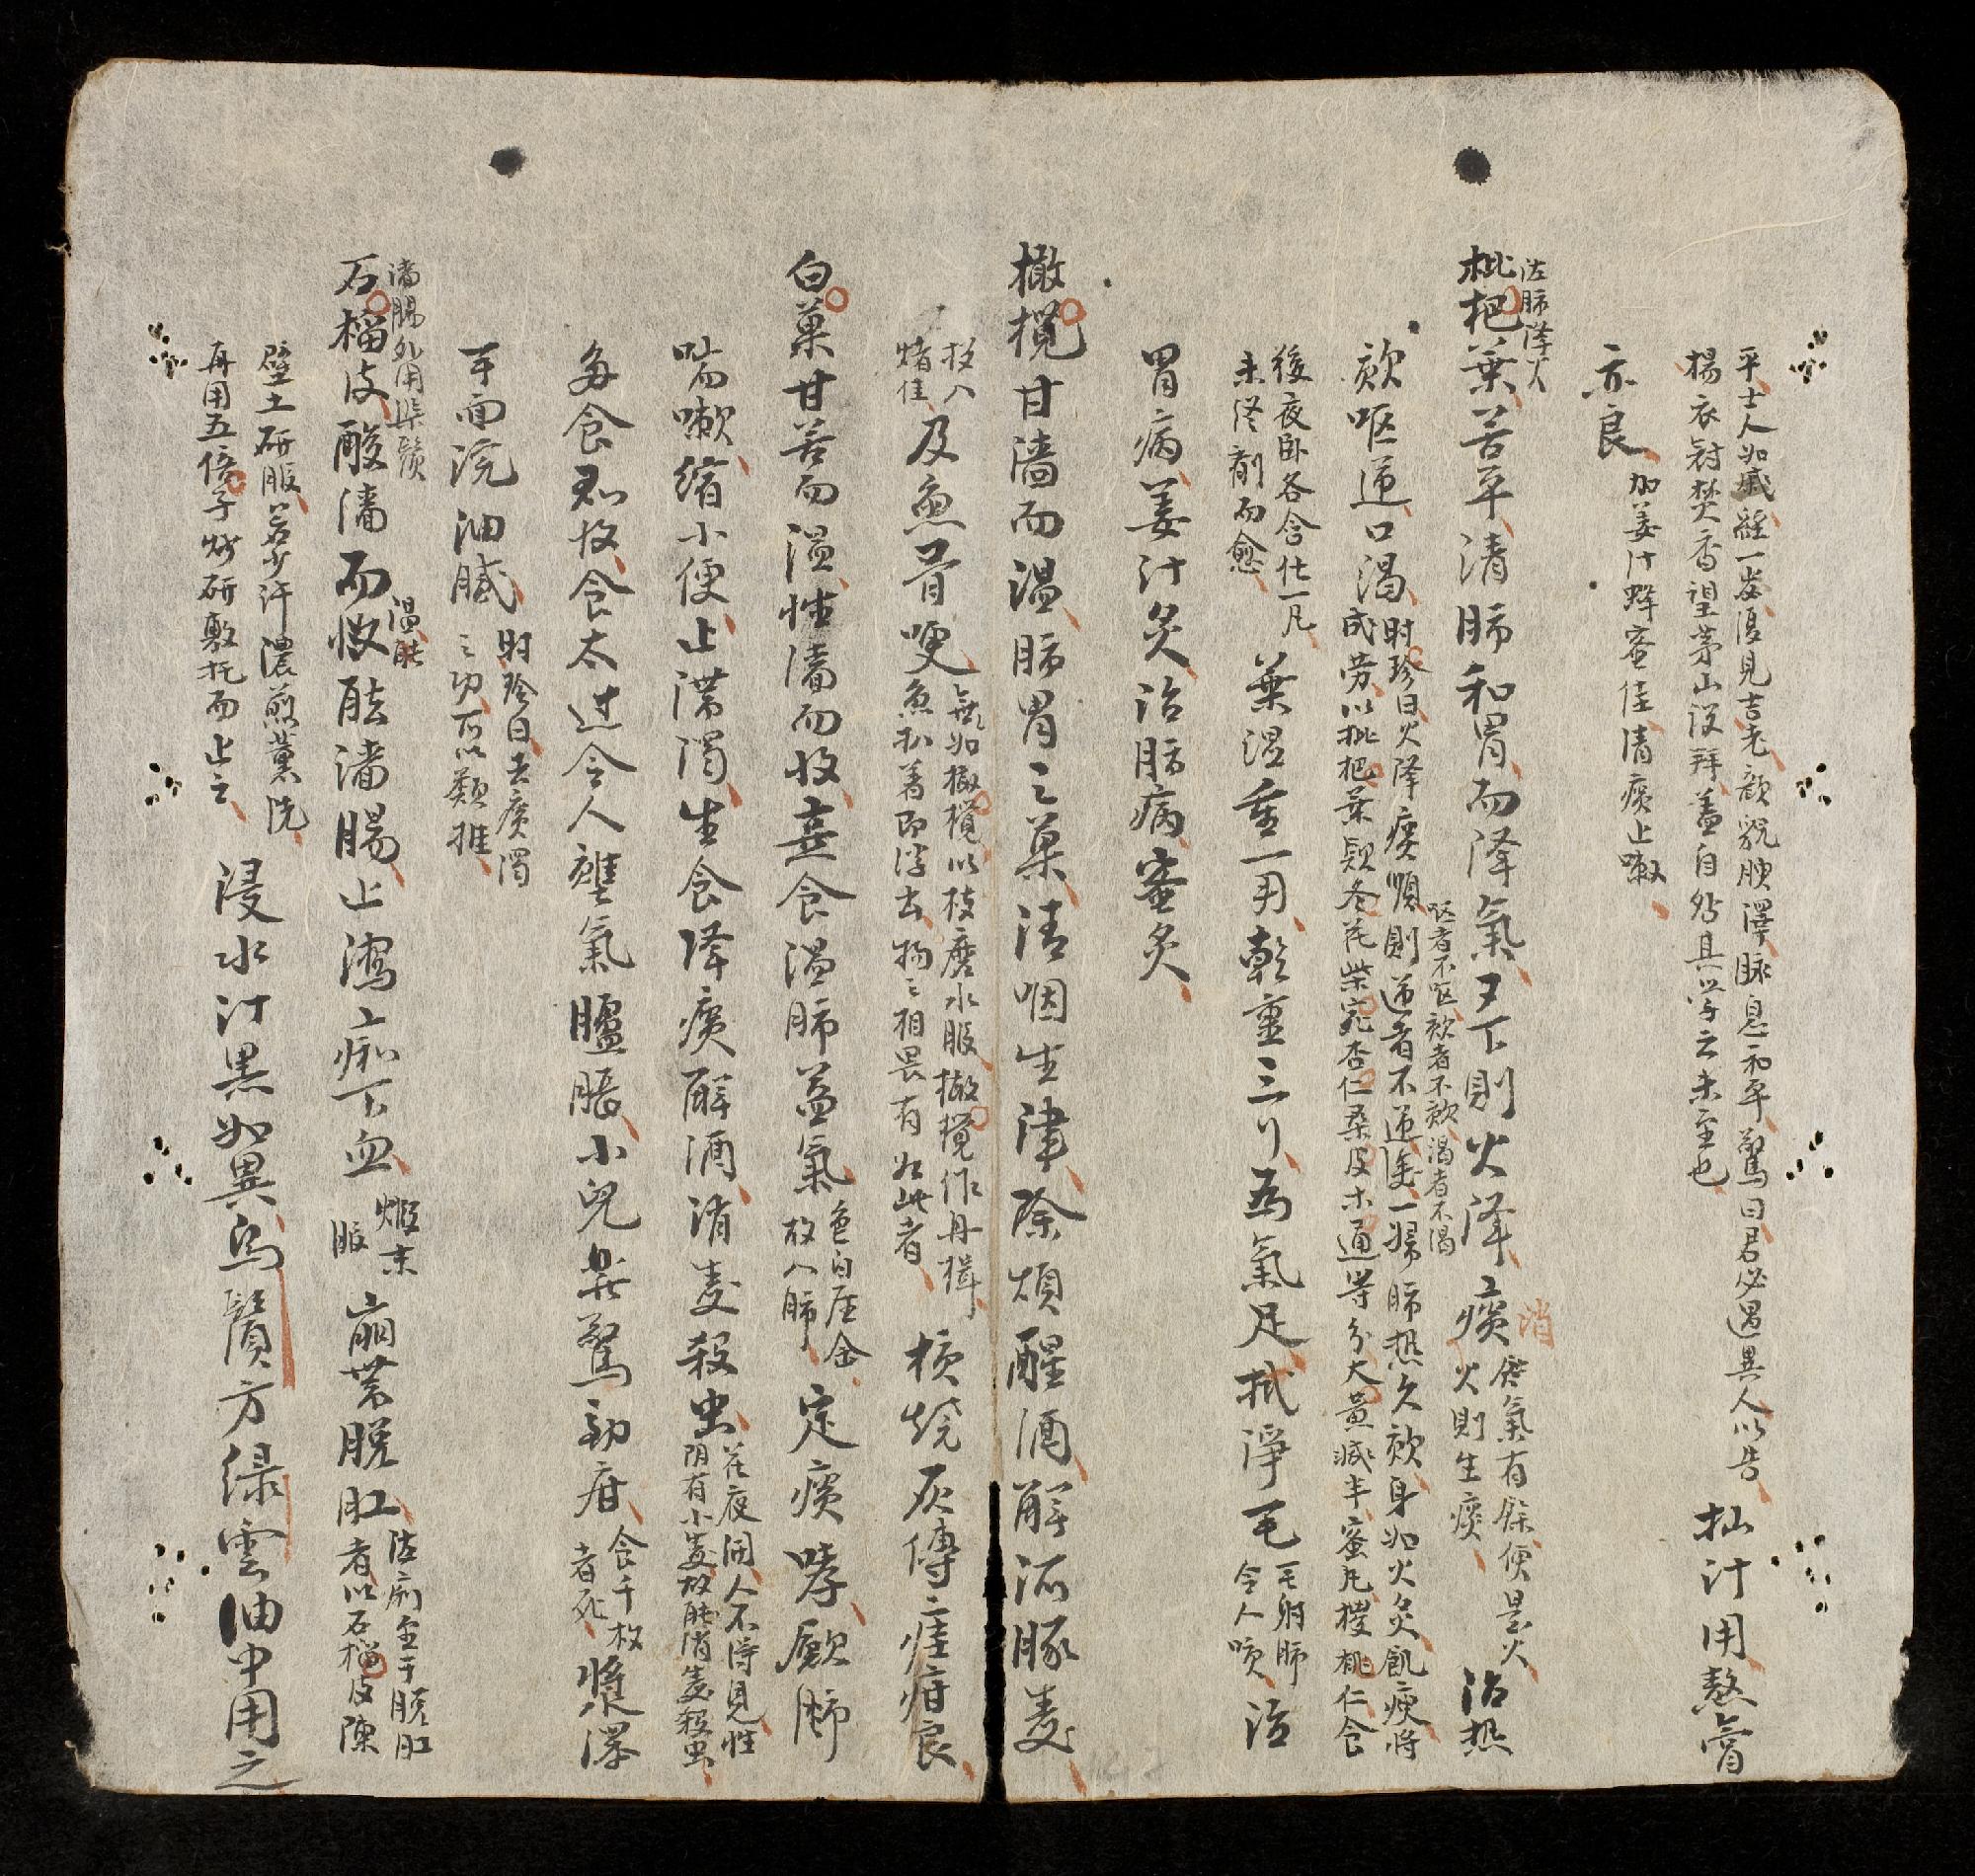 平士人如戒經一劳復見吉老顏貌腴澤脉息和平驚曰君必遇異人以告
楊衣冠焚香望茅山設拜蓋自咎其学之未至也
抝汁用熬膏
亦良
加姜汁蜂蜜佳清痰止嗽
泻肺降火
枇把葉苦平清肺和胃而降氣又下則火降痰
消
盛氣有餘便是火
火則生痰
治热
呕者不呕欬者不欬渴者不渴
欬呕逆口渴
时珍曰火降痰順則逆者不逆進一婦肺热久欬身如火炙飢瘦將
成劳以枇把葉欵冬花柴宛杏仁桑皮木通等分大黄减半蜜丸樱桃仁食
後夜卧各含化一凡
未终剤而愈
葉湿重一用乾重三刂為氣足拭淨毛
毛射肺
令人咳
治
胃病姜汁炙治肺病蜜炙
橄欖甘濇而温肺胃之菓清咽生津除煩醒酒解河豚毒
投入
煮佳
及魚骨哽
無如橄欖以枝磨水服橄欖作舟楫
魚扒着即浮去物之相畏有如此者
核燒灰傅疰疳良
白菓甘苦而温性濇而收熟食温肺益氣
色白屬金
故入肺
定痰哮歛肺
喘嗽縮小便止滞濁生食降痰解酒消毒殺虫
花夜開人不得見性
阴有小毒故能消毒殺虫
多食則收食太过令人壅氣臚脹小兒發驚動疳
食千枚
者死
漿澤
手面浣油膩
时珍曰去痰濁
之功可以類推
濇腸外用染鬚
石榴皮酸濇而收
温能
能濇腸止瀉痢下血
煆末
服
崩帶脱肛
泻痢至于脱肛
者以石榴皮陳
壁土研服若少许濃煎薰洗
再用五倍子炒研敷托而止之
浸水汁黑如異烏鬚方绿雲油中用之